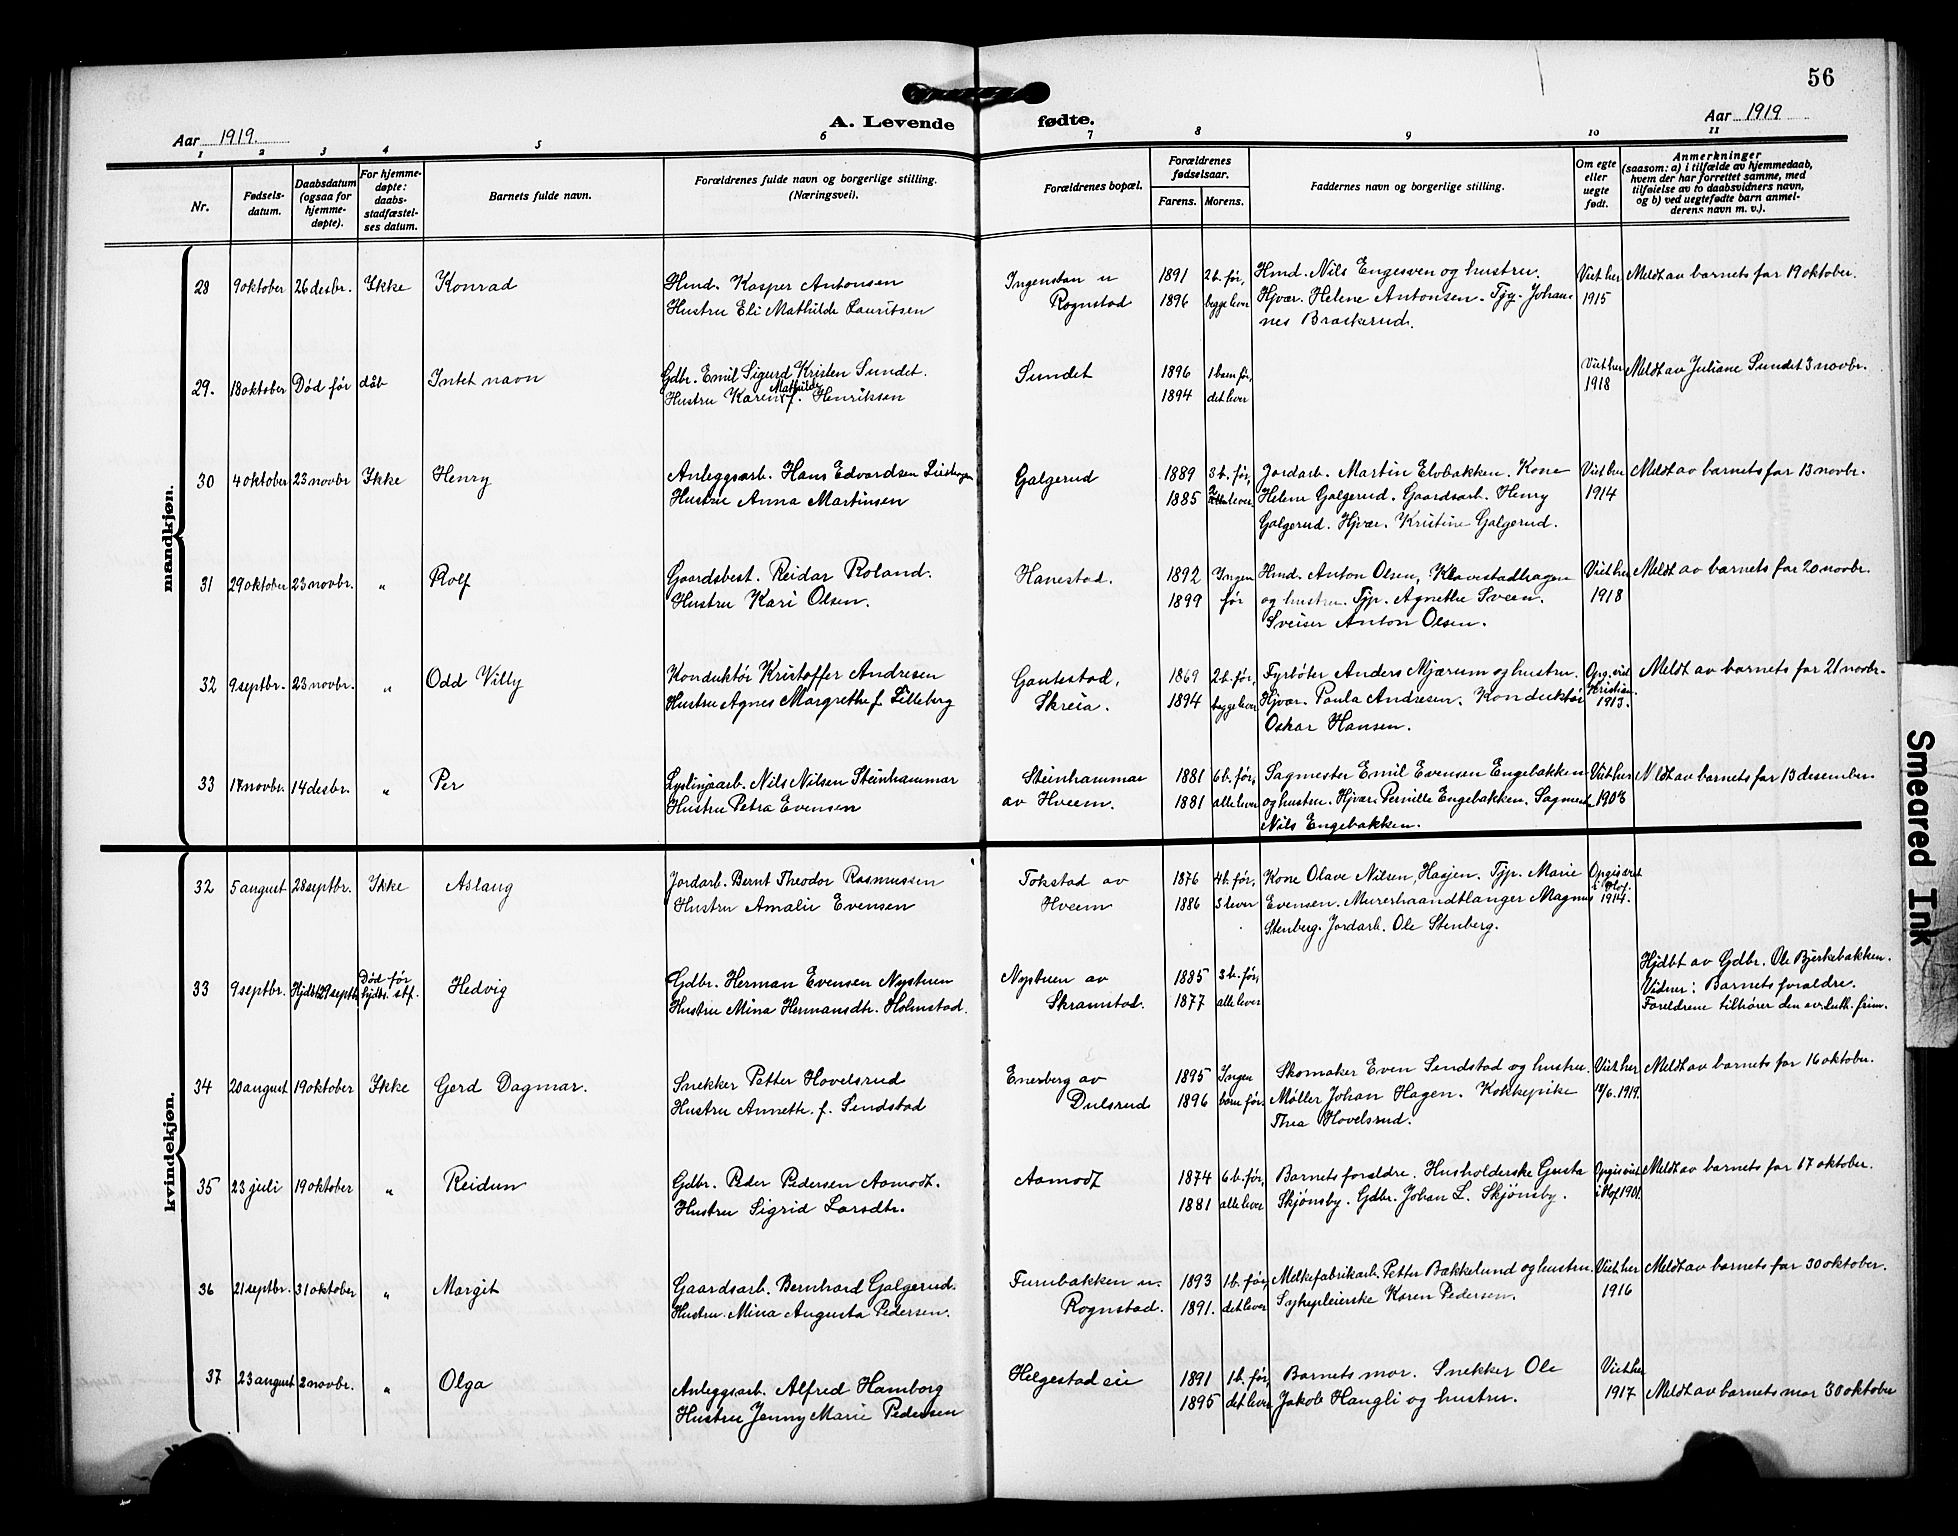 56
Aar 1919.
A. Levende
fødte.
Aar 1919
1 2 3 4 5 6 7 8 9 10 11
Nr.
Fødsels-
datum.
Daabsdatum
(ogsaa for
hjemme-
døpte).
For hjemme-
døpte:
daabs-
stadfæstel-
ses datum.
Barnets fulde navn.
Forældrenes fulde navn og borgerlige stilling.
(Næringsvei).
Forældrenes bopæl.
Forældrenes
fødselsaar.
Farens. Morens.
Faddernes navn og borgerlige stilling.
Om egte
eller
uegte
født.
Anmerkninger
(saasom: a) i tilfælde av hjemmedaab,
hvem der har forrettet samme, med
tilføielse av to daabsvidners navn,
og b) ved uegtefødte barn anmel-
derens navn m. v.).
mandkjøn.
28 9 oktober 26 desbr. Ikke Konrad Hmd. Kasper Antonsen Ingenstan u 1891 2 b. før, Hmd. Nils Engesven og hustru. Viet her Meldt av barnets far 19 oktober.
Hustru Eli Mathilde Lauritsen Rognstad 1896 begge lever Hjvær. Helene Antonsen. Tjg. Johan 1915
nes Braskerud.
29. 18 oktober Død før dåb Intet navn Gdbr. Emil Sigurd Kristen Sundet. Sundet 1896 1 barn før, Viet her Meldt av Juliane Sundet 3 novbr.
Hustru Karen Mathilde f. Henriksen 1894 det lever 1918
30 4 oktober 23 novbr Ikke Henry Anleggsarb. Hans Edvardsen Galgerud 1889 3 b. før, Jordarb. Martin Elvbakken. Kone Viet her Meldt av barnets far 13 novbr.
Hustru Anna Martinsen 1885 2 lever Helene Galgerud. Gaardsarb. Henry 1914
Galgerud. Hjvær. Kristine Galgerud.
31 29 oktober 23 novbr. " Rolf Gaardsbest. Reidar Roland. Hanestad. 1892 Ingen Hmd. Anton Olsen, Klavestadhagen Viet her Meldt av barnets far 20 novbr.
Hustru Kari Olsen. 1899 før og hustru. Tjp. Agnethe Sveen. 1918
Sveiser Anton Olsen.
32 9 septbr. 23 novbr. " Odd Villy Konduktør Kristoffer Andresen Gautestad, 1869 2 b. før, Fyrbøter Anders Mjærum og hustru. Opg. viet Meldt av barnets far 21 novbr.
Hustru Agnes Margrethe f. Lilleberg Skreia. 1894 begge lever Hjvær. Paula Andresen. Konduktør Kristian.
Oskar Hansen. 1913.
33 17 novbr. 14 desbr. " Per Nils Nilsen Steinhammar Steinhammar 1881 6 b. før, Sagmester Emil Evensen Engebakken Viet her Meldt av barnets far 13 desember.
Hustru Petra Evensen av Hveem. 1881 alle lever og hustru. Hjvær. Pernille Engebakken. Sagmest.
Nils Engebakken.
kvindekjøn.
32 5 august 28 septbr. Ikke Aslaug Jordarb. Bernt Theodor Rasmussen Tokstad av 1876 4 b. før, Kone Olave Nilsen, Hagen. Tjp. Marie Opgis viet
Hustru Amalie Evensen Hveem 1886 3 lever Evensen. Murerhaandtlanger Magnus i Hof.
Stenberg. Jordarb. Ole Stenberg. 1914.
33 9 septbr. Hjdbt 29 septbr Død før hjdbs. stf. Hedvig Gdbr. Herman Evensen Nystuen Nystuen av 1885 3 b. før, Hjdbt av Gdbr. Ole Bjerkebakken.
Hustru Mina Hermansdtr. Holmstad. Skramstad. 1877 alle lever Vidner: Barnets foraldre.
Foreldrene tilhører den ev. luth. frim.
34 20 august 19 oktober Ikke Gerd Dagmar. Snekker Petter Hovelsrud Enerberg av 1895 Ingen Skomaker Even Sendstad og hustru. Viet her Meldt av barnets far 16 oktober.
Hustru Anneth. f. Sendstad Dulsrud 1896 barn før. Møller Johan Hagen. Kokkepike /6. 1919.
Thea Hovelsrud.
35 23 juli 19 oktober " Reidun Gdbr. Peder Pedersen Aamodt. Aamodt 1874 6 b. før, Barnets foraldre. Husholderske Gusta Opgis viet Meldt av barnets far 17 oktober.
Hustru Sigrid Larsdtr. 1881 alle lever Skjønsby. Gdbr. Johan L. Skjønsby. i Hof 1901.
36 21 septbr. 31 oktober " Margit Gaardsarb. Bernhard Galgerud. Furubakken u. 1893 1 b. før, Melkefabrikarb. Petter Bakkelund og hustru. Viet her Meldt av barnets far 30 oktober.
Hustru. Mina Augusta Pedersen. Rognstad. 1891. det lever Sykepleierske Karen Pedersen. 1916
37 23 august 2 novbr. " Olga Anleggsarb. Alfred Hamborg Helgestad eie 1891 1 b. før, Barnets mor. Snekker Ole Viet her
Hustru Jenny Marie Pedersen 1895 det lever Jakob Haugli og hustru. 1917 Meldt av barnets mor 30 oktober
Smeared Ink